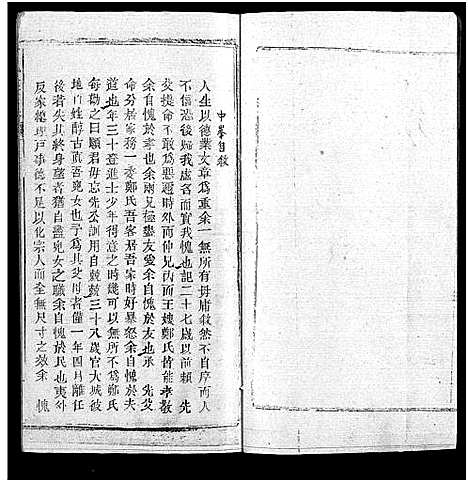 中峯自敘
人生以德業文章為重余一無所有毋庸敘然不自序而人
不信恐後歸我虛名而實我愧也記二十七歲以前賴　先
父提命不敢為惡邇時外而仲兄內而王嫂鄭氏皆能孝敬
余自愧於孝也余兩兄極盡友愛余自愧於友也承　先父
命分居家務一委鄭氏吾客居吾家時好暴怒余自愧於夫
道也年三十登進士少年得意之時幾可以無所不為鄭氏
每勸之曰願君毋忘先公訓用自兢兢三十八歲官大城彼
地百姓醇古真吾兒女也乎為其父母者僅一年四月離任
後若失其終身望者猶自盡兒女之職余自愧於民也夷外
反家總理戶事德不足以化宗人而全無尺寸之效余　愧